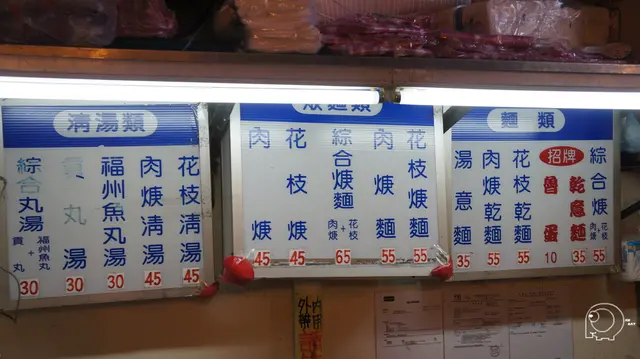 清湯類
綜合丸湯
貢丸+福州魚丸
30
貢丸湯
30
福州魚丸湯
30
肉焿清湯
45
花枝清湯
45
肉焿
45
花枝焿
45
綜合焿麵
肉焿+花枝
65
肉焿麵
55
花枝焿麵
55
麵類
湯意麵
35
肉焿乾麵
55
花枝乾麵
55
招牌
魯蛋
10
乾意麵
35
綜合焿
肉焿+花枝
55
外帶